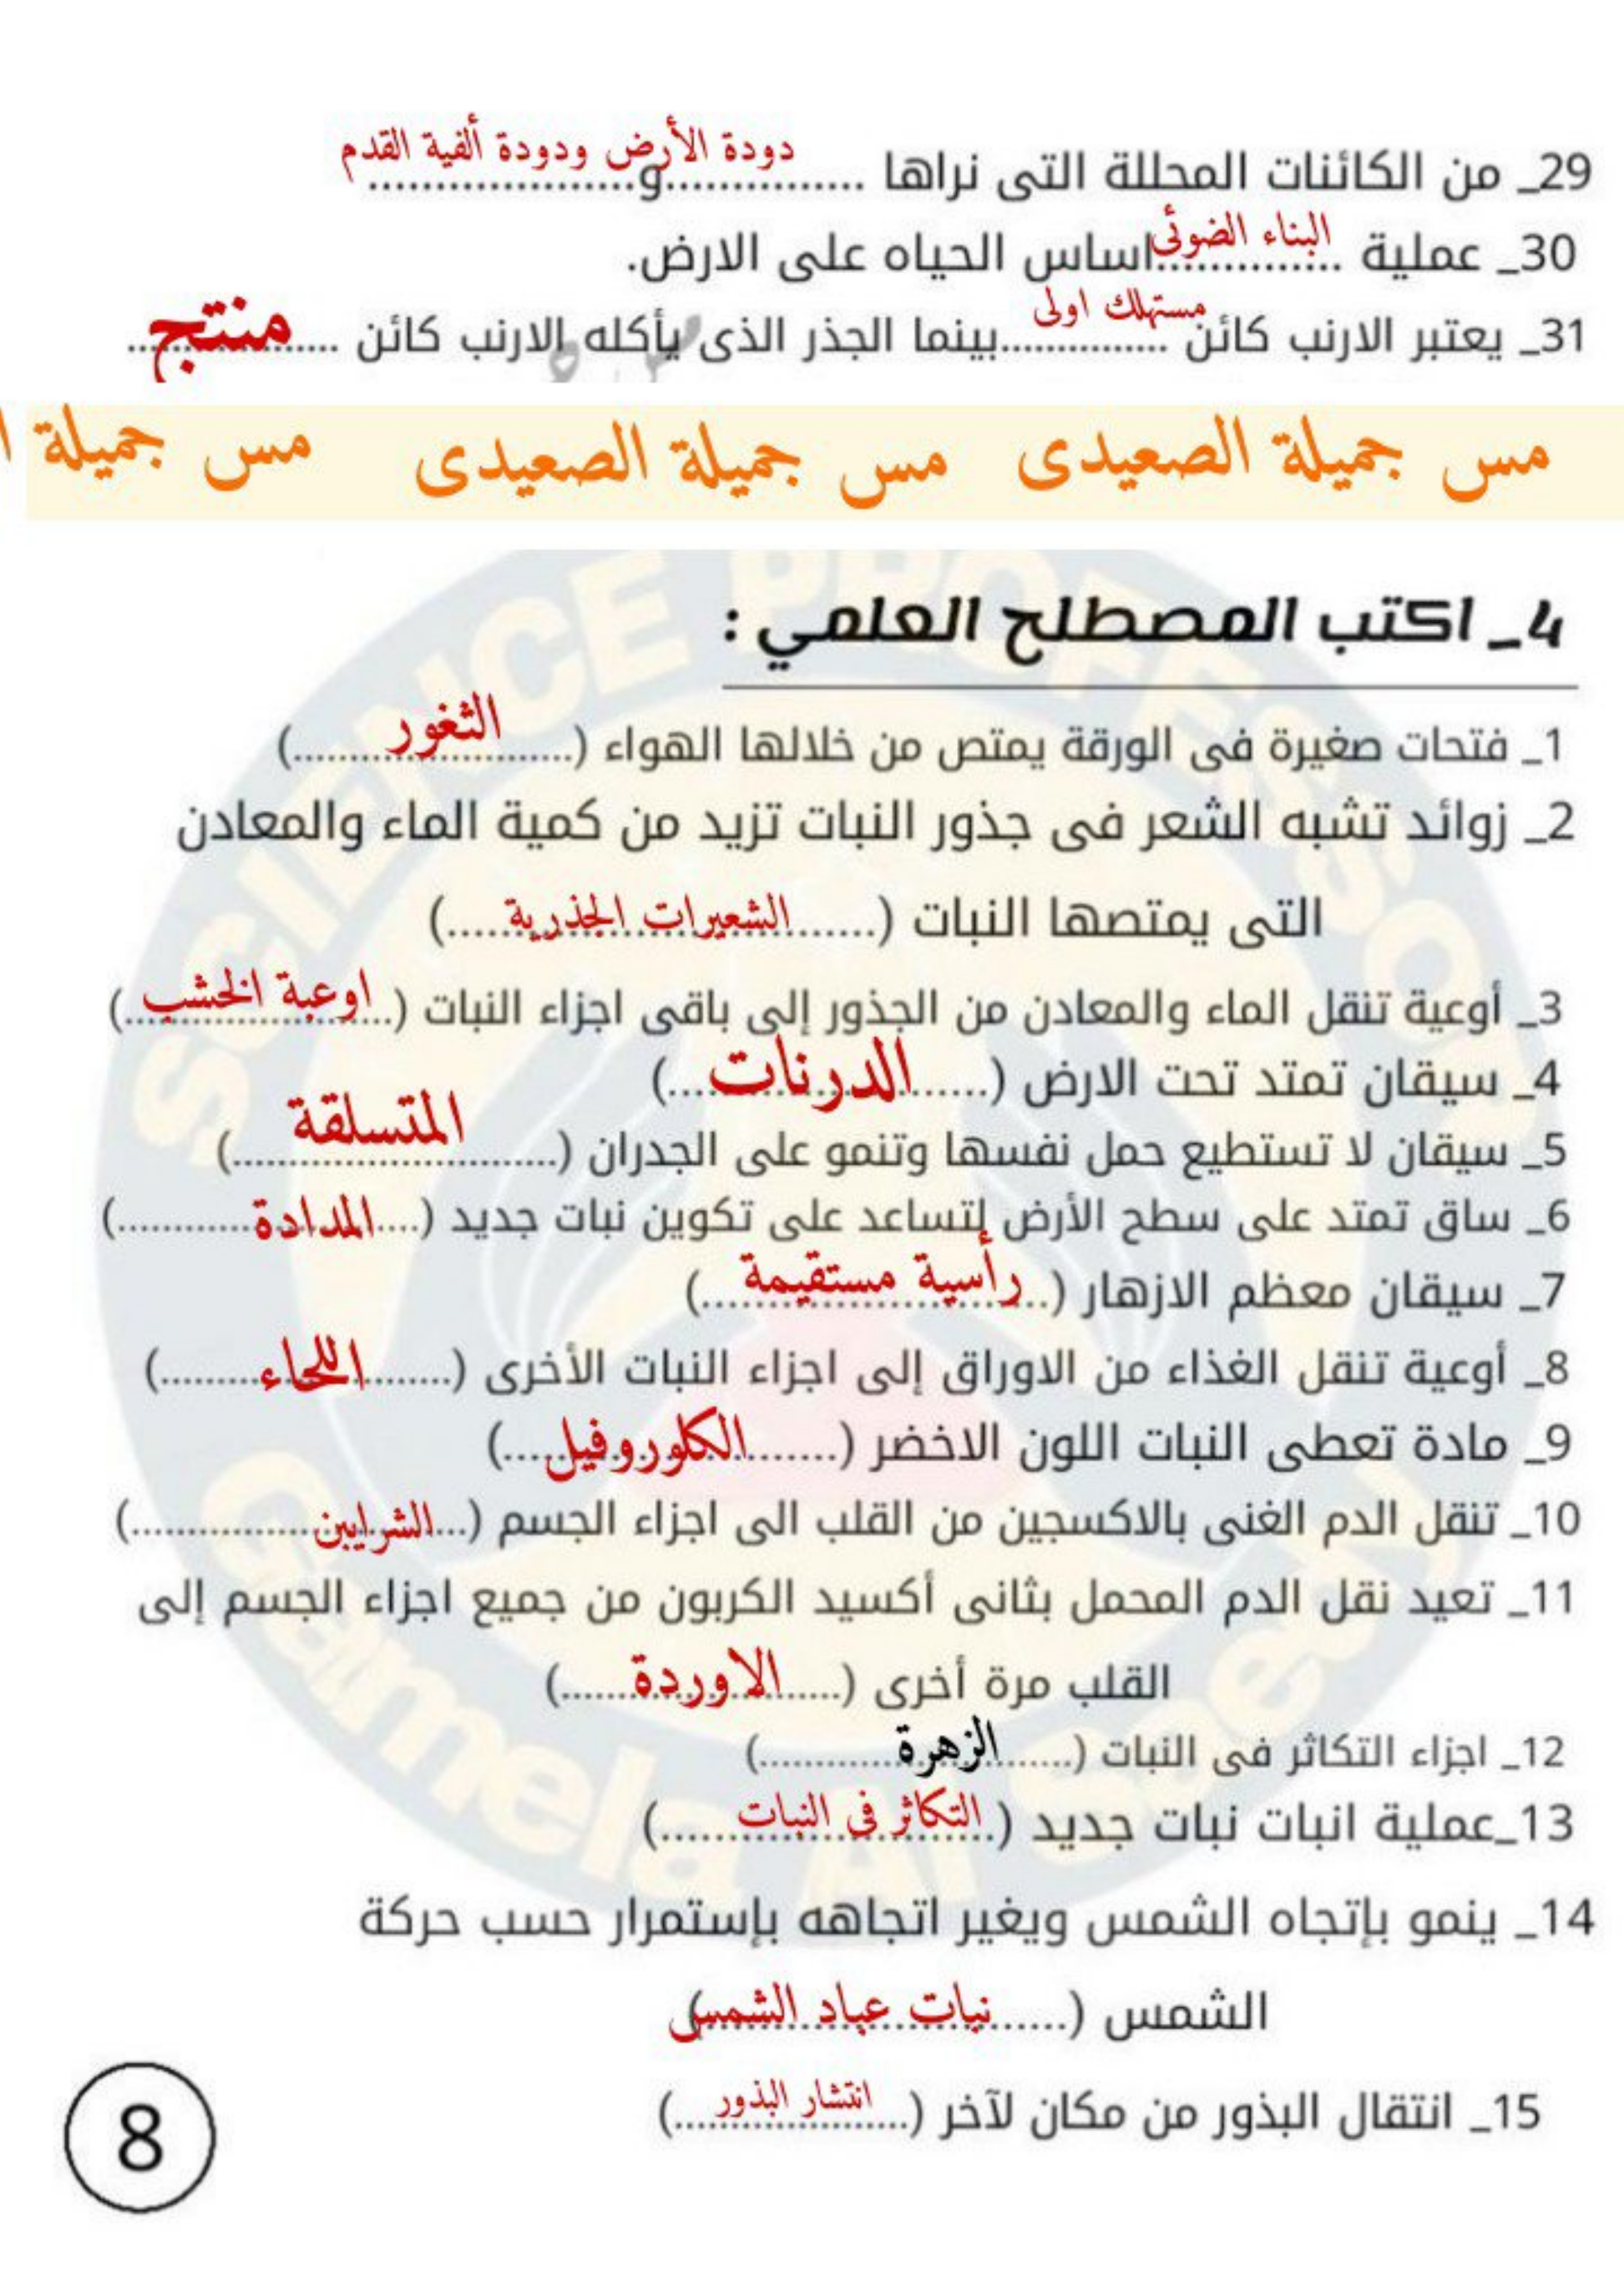 29_ من الكائنات المحللة التى نراها ...............و.................... دودة الأرض ودودة ألفية القدم
30_ عملية ..............اساس الحياه على الارض. البناء الضوئى
31_ يعتبر الارنب كائن ..............بينما الجذر الذى يأكله الارنب كائن ................ مستهلك اولى منتج
مس جميلة الصعيدى مس جميلة الصعيدى مس جميلة ا
4_ اكتب المصطلح العلمي :
1_ فتحات صغيرة فى الورقة يمتص من خلالها الهواء (الثغور)
2_ زوائد تشبه الشعر فى جذور النبات تزيد من كمية الماء والمعادن
التى يمتصها النبات (الشعيرات الجذرية)
3_ أوعية تنقل الماء والمعادن من الجذور إلى باقى اجزاء النبات (اوعية الخشب)
4_ سيقان تمتد تحت الارض (الدرنات)
5_ سيقان لا تستطيع حمل نفسها وتنمو على الجدران (المتسلقة)
6_ ساق تمتد على سطح الأرض لتساعد على تكوين نبات جديد (المدادة)
7_ سيقان معظم الازهار (رأسية مستقيمة)
8_ أوعية تنقل الغذاء من الاوراق إلى اجزاء النبات الأخرى (اللحاء)
9_ مادة تعطى النبات اللون الاخضر (الكلوروفيل)
10_ تنقل الدم الغنى بالاكسجين من القلب الى اجزاء الجسم (الشرايين)
11_ تعيد نقل الدم المحمل بثانى أكسيد الكربون من جميع اجزاء الجسم إلى
القلب مرة أخرى (الاوردة)
12_ اجزاء التكاثر فى النبات (الزهرة)
13_عملية انبات نبات جديد (التكاثر فى النبات)
14_ ينمو بإتجاه الشمس ويغير اتجاهه بإستمرار حسب حركة
الشمس (نبات عباد الشمس)
15_ انتقال البذور من مكان لآخر (انتشار البذور)
8
SCIENCE PROFESSOR
Gamela Al Saedy